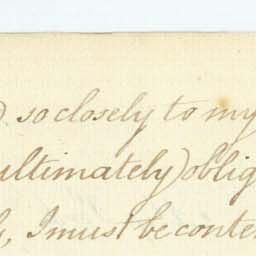 ) so closely to my
ultimately) oblig
, I must be conte